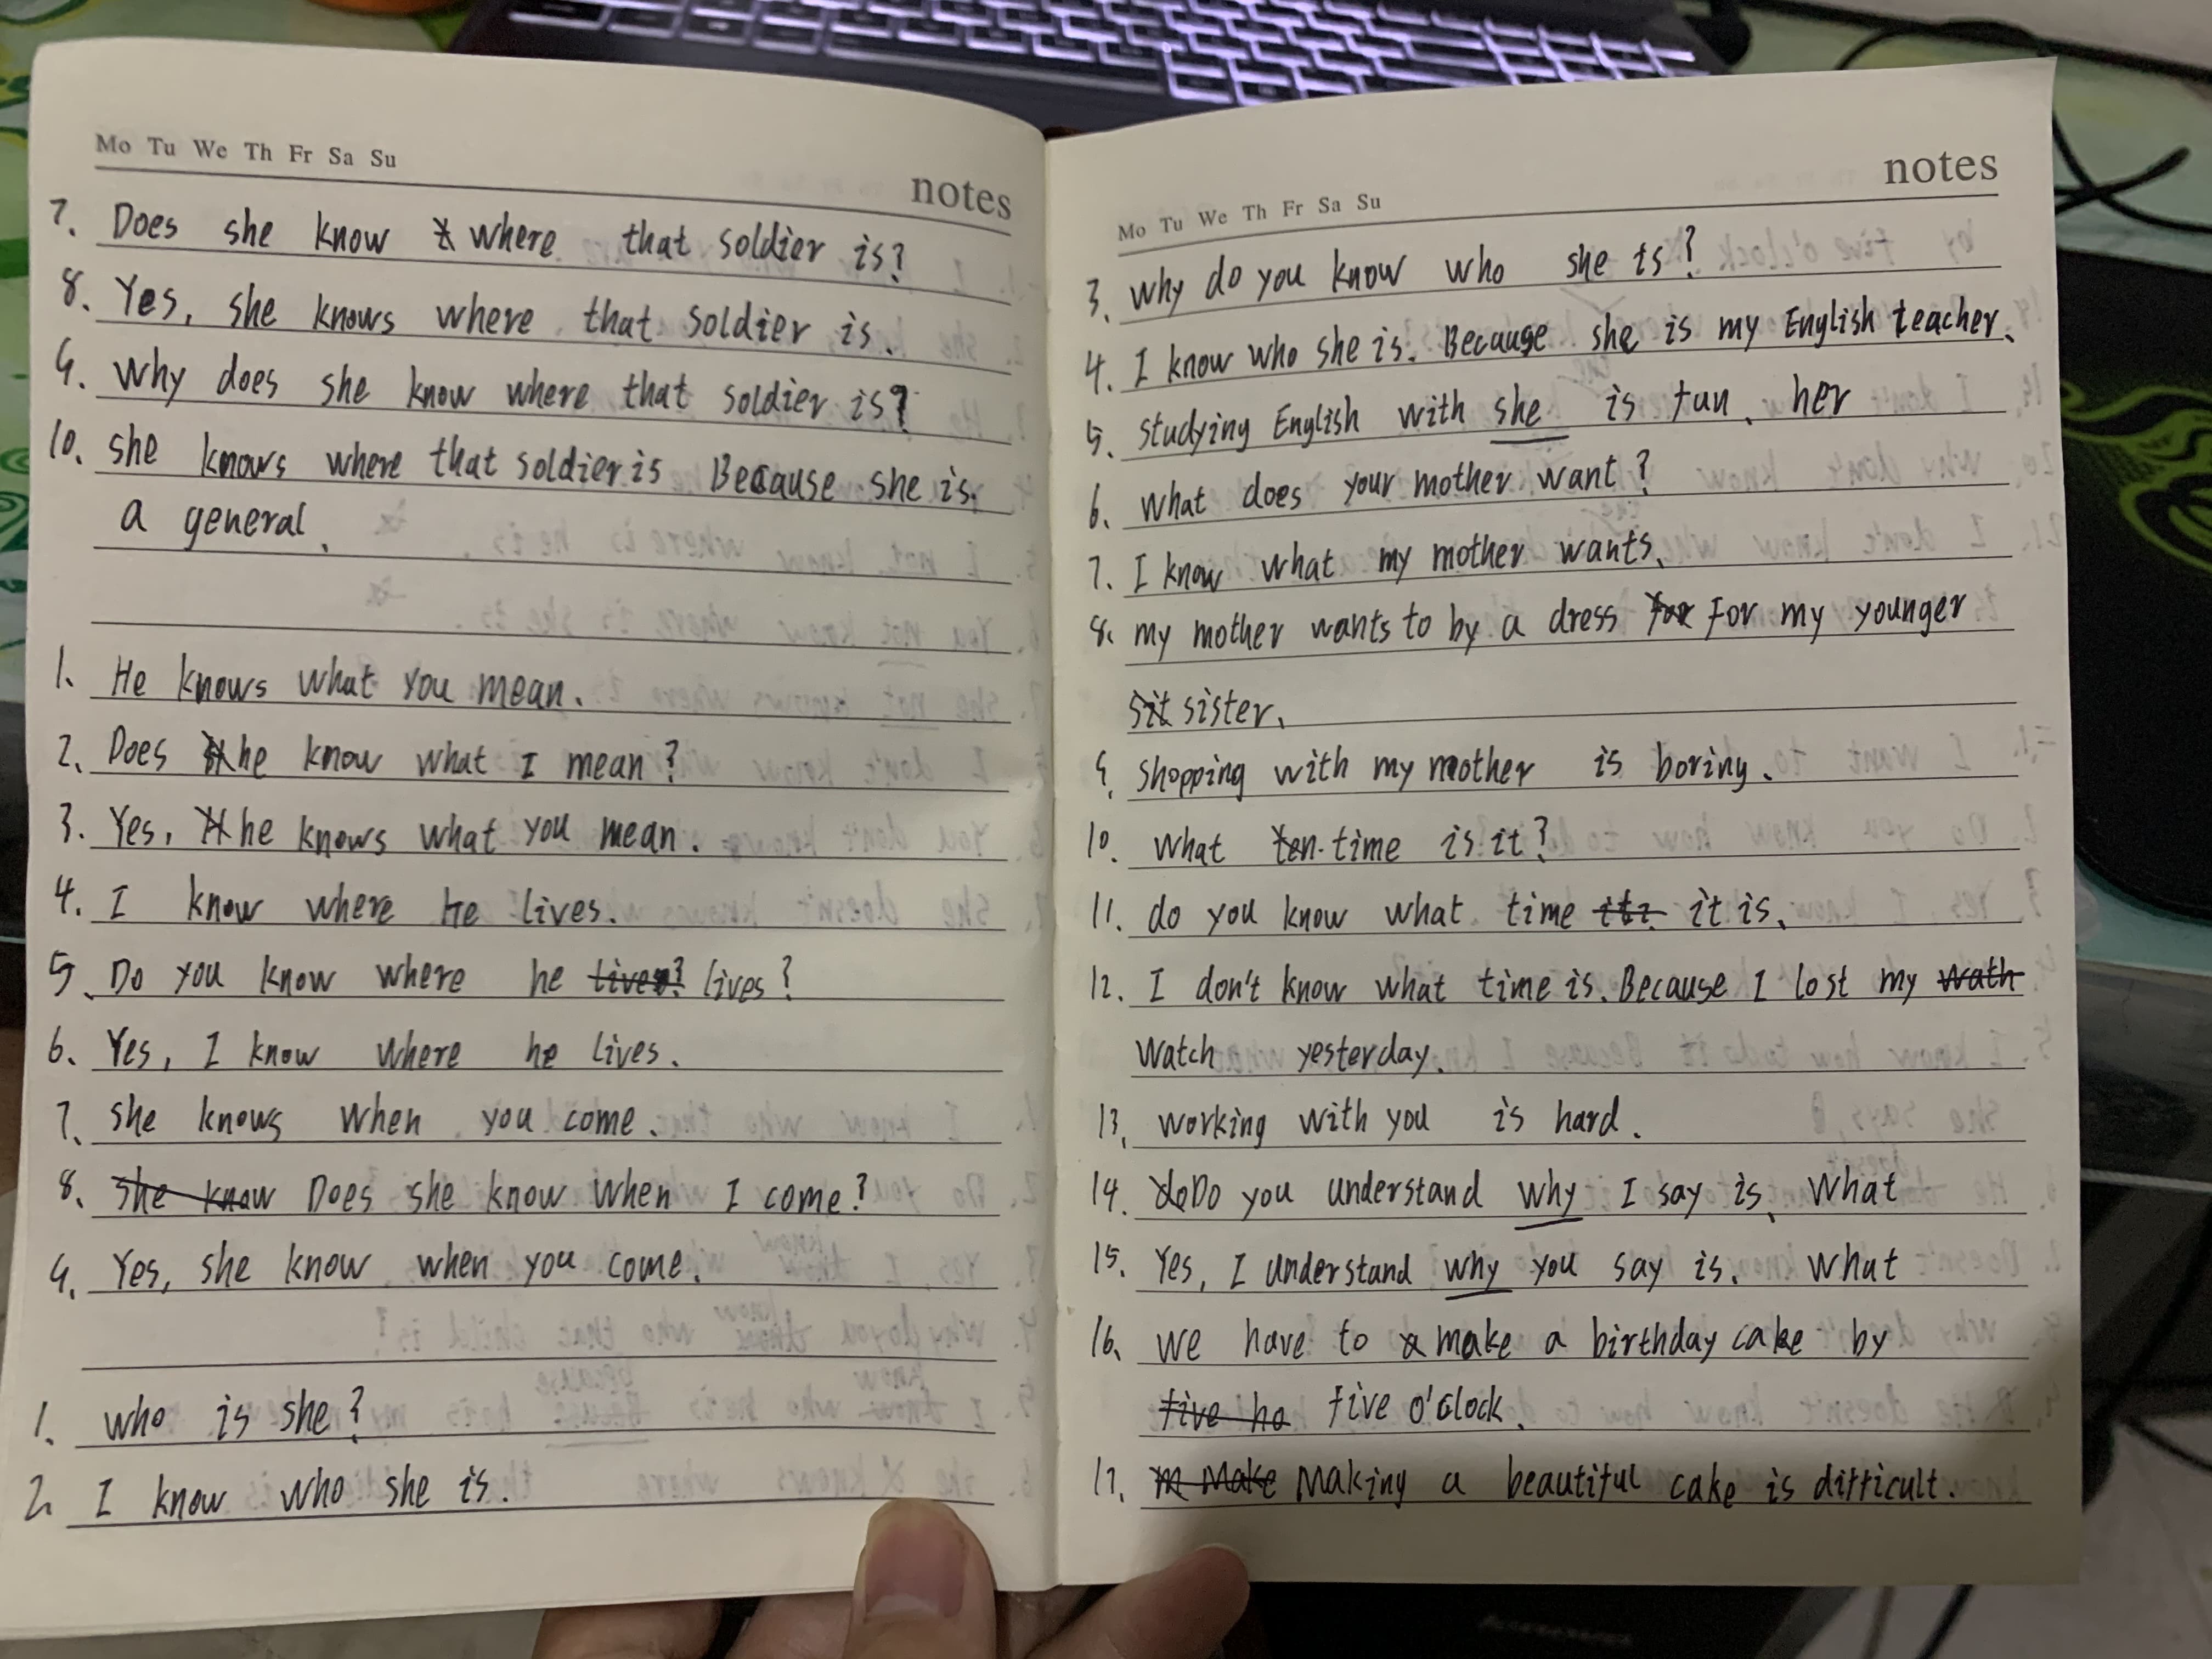 Mo Tu We Th Fr Sa Su
notes
7. Does she know where that soldier is?
8. Yes, she knows where that soldier is.
9. Why does she know where that soldier is?
10. she knows where that soldier is Because she is
a general.
1. He knows what you mean.
2. Does he know what I mean?
3. Yes, he knows what you mean.
4. I know where he lives.
5. Do you know where he lives? lives?
6. Yes, I know where he lives.
7. she knows when you come.
8. she know Does she know when I come?
9. Yes, she know when you come.
1. who is she?
2. I know who she is.
Mo Tu We Th Fr Sa Su
notes
3. why do you know who she is?
4. I know who she is. Because she is my English teacher.
5. studying English with she is fun. her
6. what does your mother want?
7. I know what my mother wants.
8. my mother wants to by a dress for for my younger
sit sister.
9. shopping with my mother is boring.
10. what ten time is it?
11. do you know what time it? it is.
12. I don't know what time is. Because I lost my wath
watch yesterday.
13. working with you is hard.
14. do Do you understand why I say is. what
15. Yes, I understand why you say is. what
16. we have to make a birthday cake by
five ho five o'clock.
17. m make making a beautiful cake is difficult.